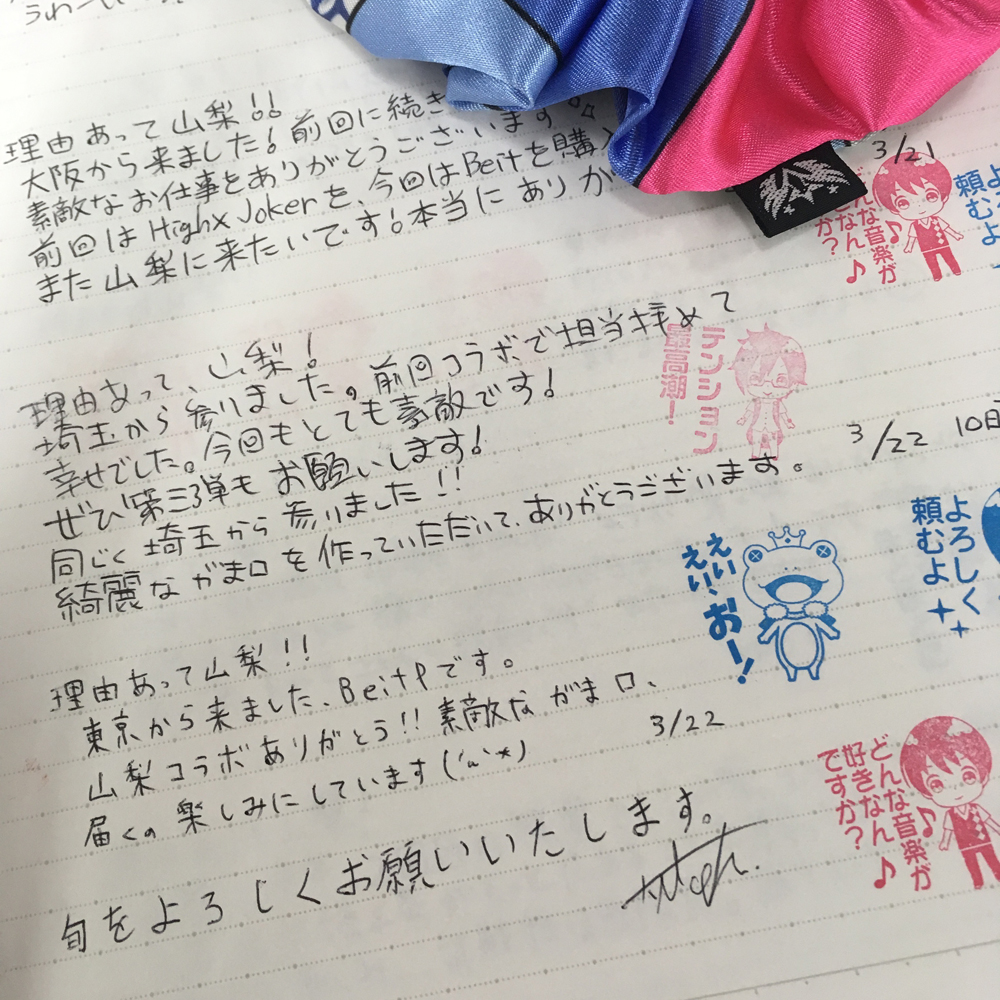 理由あって山梨!!
大阪から来ました!前回に続き
素敵なお仕事をありがとうございます
前回はHigh×Jokerを、今回はBeitを購入
また山梨に来たいです!本当にありが
3/21
どんな音楽が
好きなん
ですか?
よ
頼むよ
理由あって、山梨!
埼玉から参りました。前回コラボで担当拝めて
幸せでした。今回もとても素敵です!
ぜひ第三弾もお願いします!
テンション
最高潮!
3/22
同じく埼玉から参りました!!
綺麗ながま口を作っていただいて、ありがとうございます。
えい、
えい、
おー!
よろしく
頼むよ
理由あって山梨!!
東京から来ました、BeitPです。
山梨コラボありがとう!!素敵ながま口、
届くの楽しみにしています
3/22
旬をよろしくお願いいたします。
どんな音楽が
好きなん
ですか?